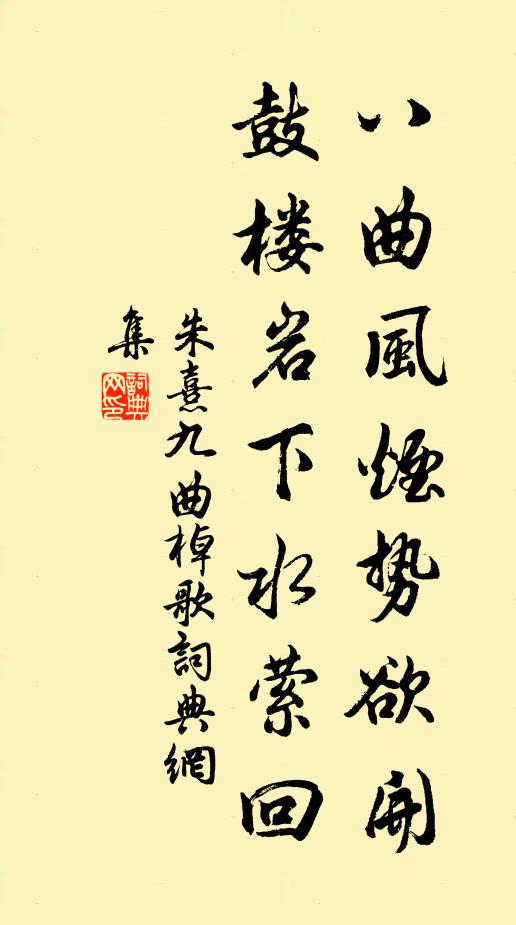 八曲風煙势欲開
鼓楼岩下水萦回
朱熹九曲棹歌詞典網
集
詞典网印